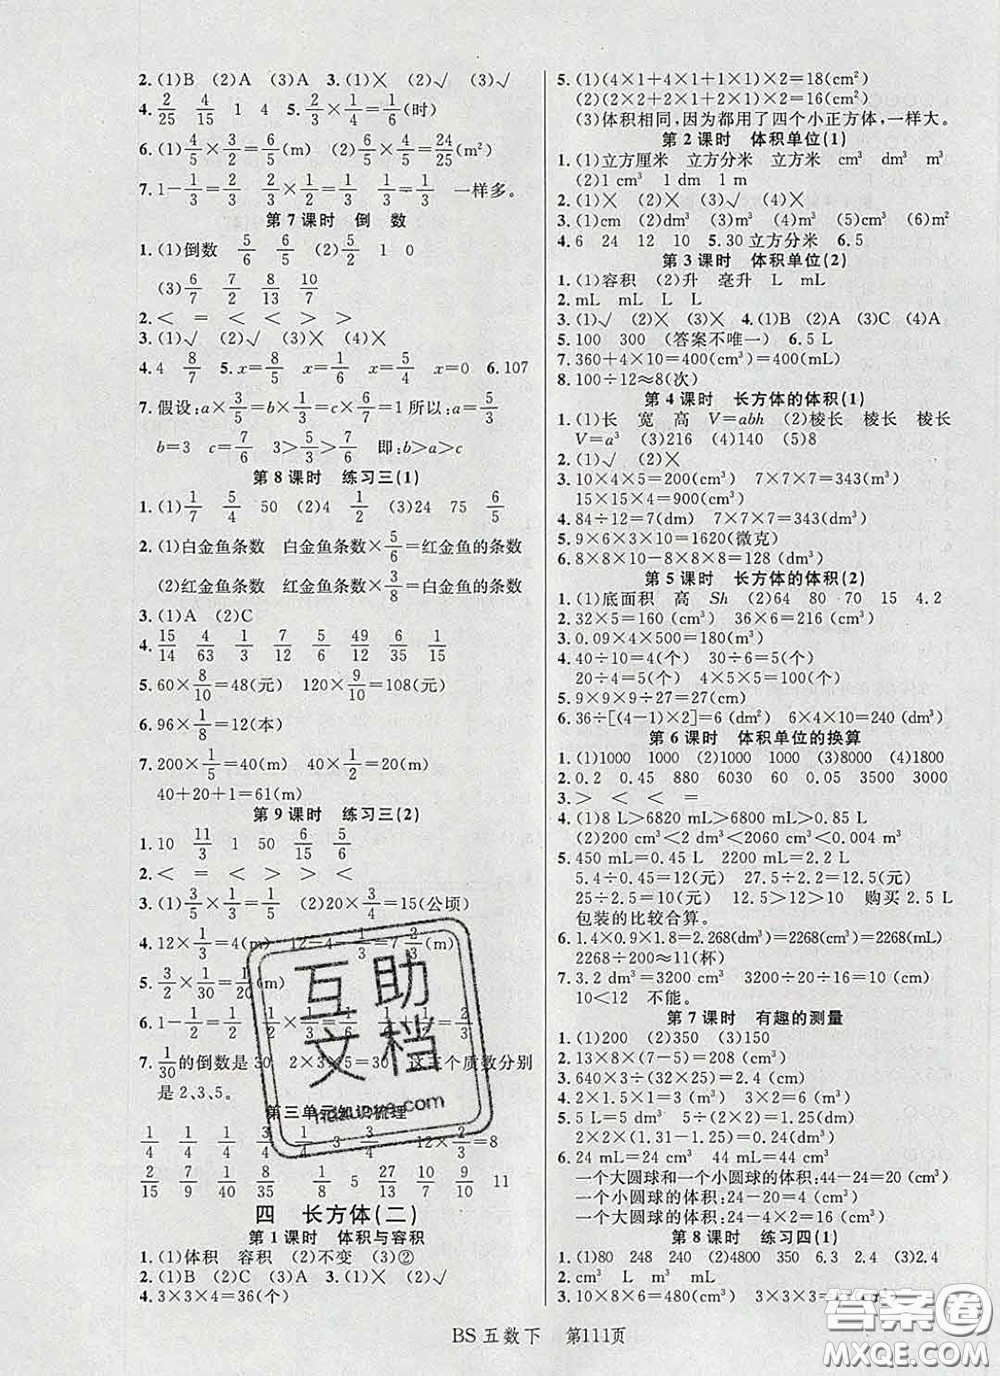 2.(1)B (2)A (3)A 3.(1)× (2)√ (3)√
4. 2/25 4/15 1 4 5. 2/3×1/4=1/6(时)
6.(1)4/5×3/2=6/5(m) (2)6/5×4/5=24/25(m²)
7.1-1/3=2/3 2/3×1/2=1/3 1/3=1/3 一样多。
第7课时 倒 数
1.(1)倒数 5/6 6/5 (2)5/2 1 0
(3)6/7 7/2 8/13 10/7
2.< = < < > >
3.(1)√ (2)√ (3)× (4)√
4.4 8/7 5.x=8/5 x=1/4 x=5/4 6.107
7.假设:a×3/5=b×1/3=c×6/7=1所以:a=5/3
b=3 c=7/6 3>5/3>7/6 即:b>a>c
第8课时 练习三(1)
1.(1)1/7 5/4 50 (2)4 1/2 (3)24 75 6/5
2.(1)白金鱼条数 白金鱼条数×5/6=红金鱼的条数
(2)红金鱼条数 红金鱼条数×3/8=白金鱼的条数
3.(1)A (2)C
4. 15/14 4/63 1/3 1/2 5/6 49/12 6/35 11/15
5.60×8/10=48(元) 120×9/10=108(元)
6.96×1/8=12(本)
7.200×1/5=40(m) 40×1/2=20(m)
40+20+1=61(m)
第9课时 练习三(2)
1.10 11/3 1 50 6/15 5/6
2.< = < > > <
3.(1)3/5×1/3=1/5 (2)20×3/4=15(公顷)
4.12×1/3=4(m) 12-4-1/3=7 2/3(m)
5. 3/2×1/30=1/20(m)
6.1-1/2=1/2 1/2×1/3=
7. 1/30的倒数是30 2×3×5=30 这三个质数分别
是2、3、5。
第三单元知识梳理
1/4 1/4 1/4 1/2 1/2 1/2 1/4 12×2/3=8
2/15 7/9 10/7 9/10 5/13 27/7 10/9 11/10 11
四 长方体(二)
第1课时 体积与容积
1.(1)体积 容积 (2)不变 (3)②
2.(1)B (2)C (3)A 3.(1)× (2)√
4.3×3×4=36(个)
5.(1)(4×1+4×1+1×1)×2=18(cm²)
(2)(2×2+2×1+2×1)×2=16(cm²)
(3)体积相同,因为都用了四个小正方体,一样大。
第2课时 体积单位(1)
1.(1)立方厘米 立方分米 立方米 cm³ dm³ m³
(2)1 cm³ 1 dm 1 m
2.(1)× (2)× (3)√ (4)×
3.(1)cm (2)dm³ (3)m³ (4)cm³ (5)cm² (6)m³
4.6 24 12 10 5.30立方分米 6.5
第3课时 体积单位(2)
1.(1)容积 (2)升 毫升 L mL
2.mL mL L L
3.(1)√ (2)× (3)× 4.(1)B (2)A (3)C (4)A
5.100 300 (答案不唯一) 6.5 L
7.360+4×10=400(cm³)=400(mL)
8.100÷12≈8(次)
第4课时 长方体的体积(1)
1.(1)长 宽 高 V=abh (2)棱长 棱长 棱长
V=a³ (3)216 (4)140 (5)8
2.(1)√ (2)×
3.10×4×5=200(cm³) 7×7×7=343(cm³)
15×15×4=900(cm³)
4.84÷12=7(dm) 7×7×7=343(dm³)
5.9×6×3×10=1620(微克)
6.8×8×10-8×8×8=128 (dm³)
第5课时 长方体的体积(2)
1.(1)底面积 高 Sh (2)64 80 70 15 4.2
2.32×5=160 (cm³) 36×6=216 (cm³)
3.0.09×4×500=180(m³)
4.40÷10=4(个) 30÷6=5(个)
20÷4=5(个) 4×5×5=100(个)
5.9×9×9÷27=27(cm)
6.36÷[(4-1)×2]=6 (dm²) 6×4×10=240 (dm³)
第6课时 体积单位的换算
1.(1)1000 1000 (2)1000 1000 (3)8000 (4)1800
2.0.2 0.45 880 6030 60 0.05 3500 3000
3.> < < =
4.(1)8 L>6820 mL>6800 mL>0.85 L
(2)200 cm³<2 dm³<2060 cm³<0.004 m³
5.450 mL=0.45 L 2200 mL=2.2 L
5.4÷0.45=12(元) 27.5÷2.2=12.5(元)
25÷2.5=10(元) 12.5>12>10 购买2.5 L
包装的比较合算。
6.1.4×0.9×1.8=2.268(dm³)=2268(cm³)=2268(mL)
2268÷200≈11(杯)
7.3.2 dm³=3200 cm³ 3200÷20÷16=10(cm)
10<12 不能。
第7课时 有趣的测量
1.(1)200 (2)350 (3)150
2.13×8×(7-5)=208 (cm³)
3.640×3÷(40×20)=2.4 (cm)
4.2×2×1.5=6(m³) 6÷(3×2)=1(m)
5.5 L=5 dm³ 5÷(2×2)=1.25 (dm)
2×2×(1.31-1.25)=0.24 (dm³)
6.24 mL=24 cm³ 44 mL=44 cm³
一个大圆球和一个小圆球的体积:44-24=20 (cm³)
一个小圆球的体积:24-20=4 (cm³)
一个大圆球的体积:24-4×2=16 (cm³)
第8课时 练习四(1)
1.(1)80 248 240 (2)4800 350 6.3 2.4 (3)2.4
2.cm³ L m³ cm³ dm³
3.10×8×6=480(cm³) 3×3×3=
BS五数下 第111页
互助
文档
答案圈
MXQE.COM